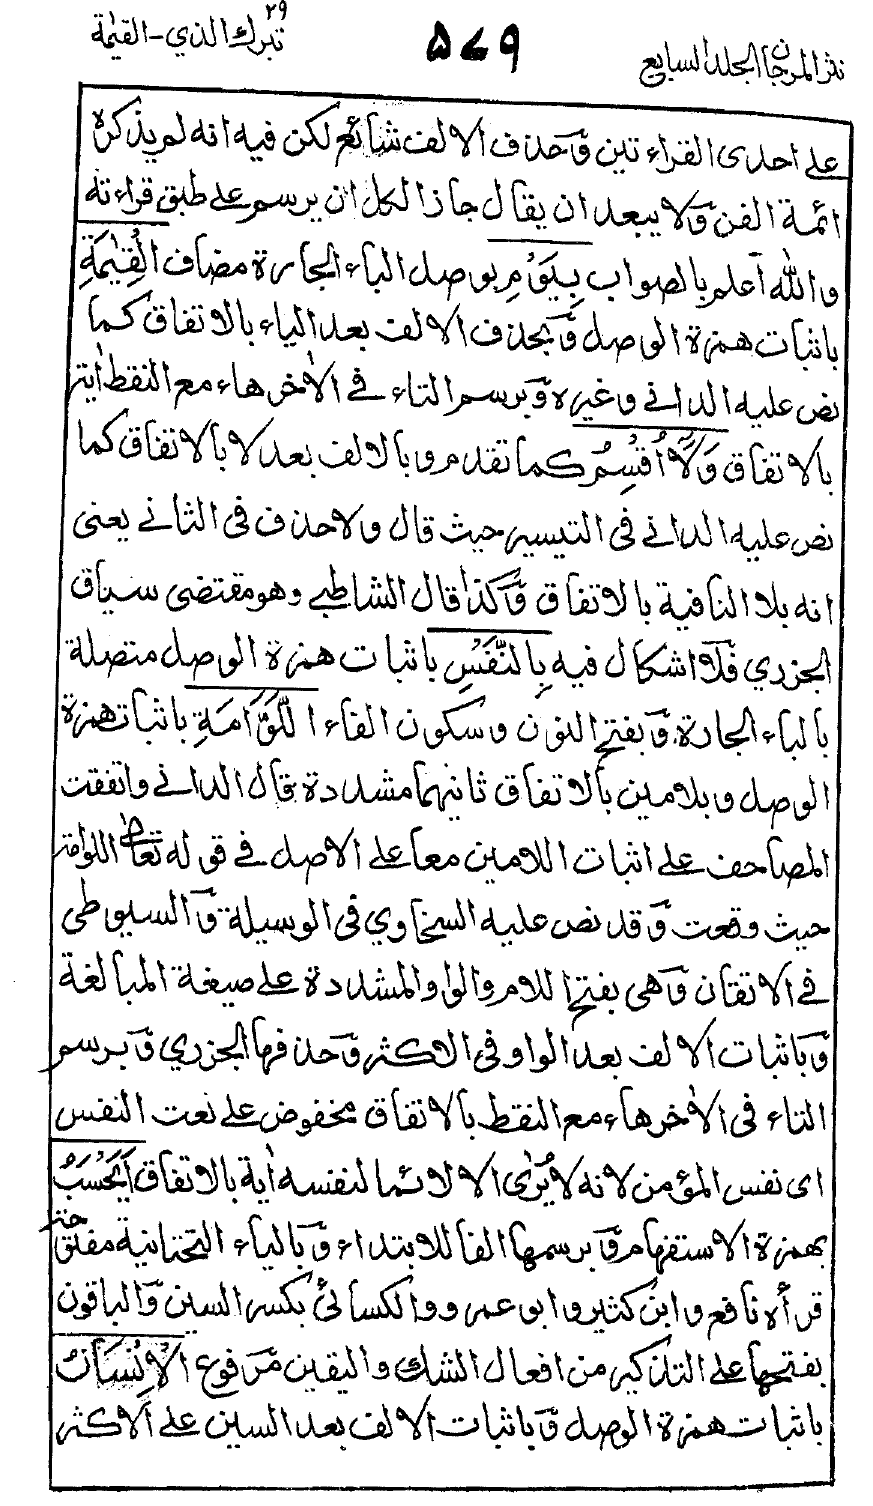 نثر المرجان الجلد السابع
٥٧٩
تبرك الذي - القيمة ٢٩
على احدى القراءتين وَحذف الالف شائع لكن فيه انه لم يذكره
ائمة الفن وَلا يبعد ان يقال جاز الكل ان يرسم على طبق قراءته
والله اعلم بالصواب بِيَوْمِ بوصل الباء الجارة مضاف الْقِيٰمَةِ
باثبات همزة الوصل وَبحذف الالف بعد الياء بالاتفاق كما
نص عليه الداني وغيره وَبرسم التاء في الاٰخر هاء مع النقط اٰية
بالاتفاق وَلَآ اُقْسِمُ كما تقدم وبالالف بعد لا بالاتفاق كما
نص عليه الداني في التيسير حيث قال ولا حذف في الثاني يعنى
انه بلا النافية بالاتفاق وَكذا قال الشاطبي وهو مقتضى سياق
الجزري فلا اشكال فيه بِالنَّفْسِ باثبات همزة الوصل متصلة
بالباء الجارة وَبفتح النون وسكون الفاء اللَّوَّامَةِ باثبات همزة
الوصل وبلامين بالاتفاق ثانيهما مشددة قال الداني واتفقت
المصاحف على اثبات اللامين معا على الاصل في قوله تعالى اللوامة
حيث وقعت وَقد نص عليه السخاوي في الوسيلة وَالسيوطي
في الاتقان وَهي بفتح اللام والواو المشددة على صيغة المبالغة
وَباثبات الالف بعد الواو في الاكثر وَحذفها الجزري وَبرسم
التاء في الاٰخر هاء مع النقط بالاتفاق مخفوض على نعت النفس
اى نفس المؤمن لانه لا يُرٰى الا لائما لنفسه اٰية بالاتفاق اَيَحْسَبُ
بهمزة الاستفهام وَبرسمها الفا للابتداء وَبالياء التحتانية مفتوحة
قرأه نافع وابن كثير وابو عمرو والكسائي بكسر السين وَالباقون
بفتحها على التذكير من افعال الشك واليقين مرفوع الْاِنْسَانُ
باثبات همزة الوصل وَباثبات الالف بعد السين على الاكثر